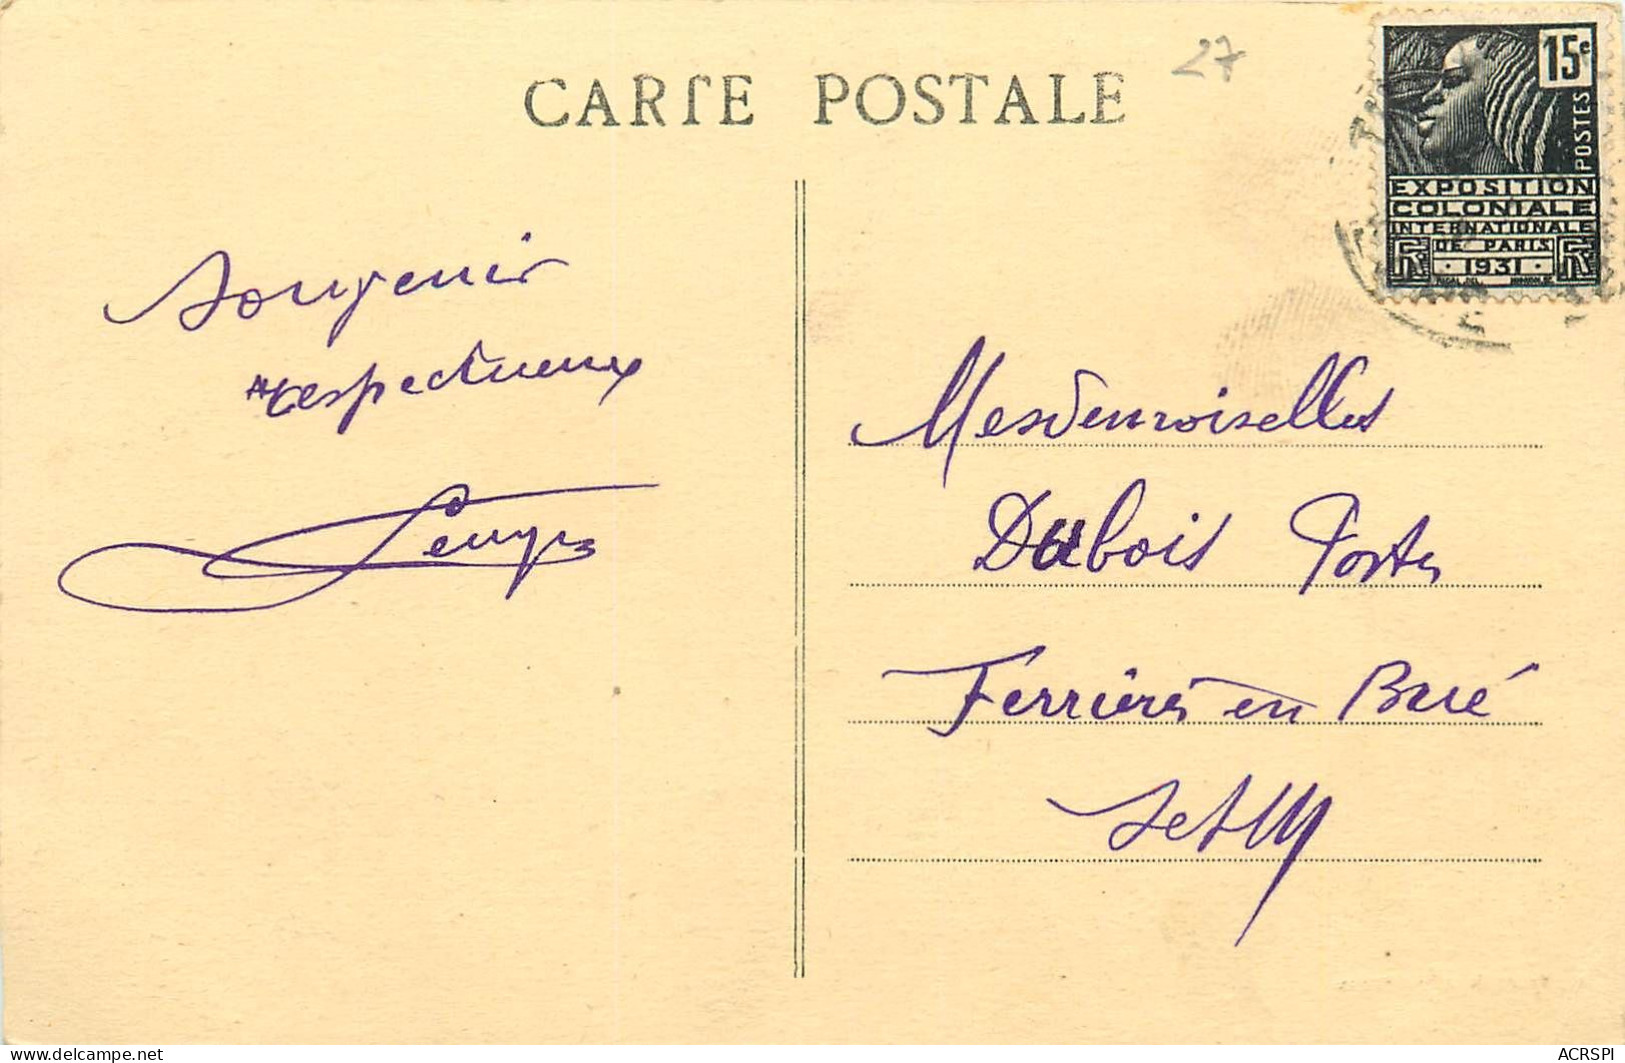 CARTE POSTALE
27
15c
POSTES
EXPOSITION
COLONIALE
INTERNATIONALE
DE PARIS
· 1931 ·
Souvenir
respectueux
Mesdemoiselles
Dubois Postes
Ferrières en Brie
SetM
delcampe.net
ACRSPI